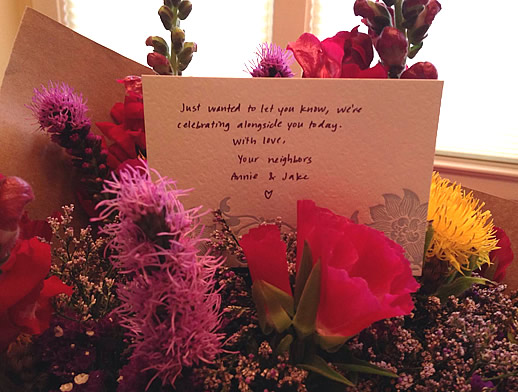 Just wanted to let you know, we're
celebrating alongside you today.
With love,
Your neighbors
Annie & Jake
♡